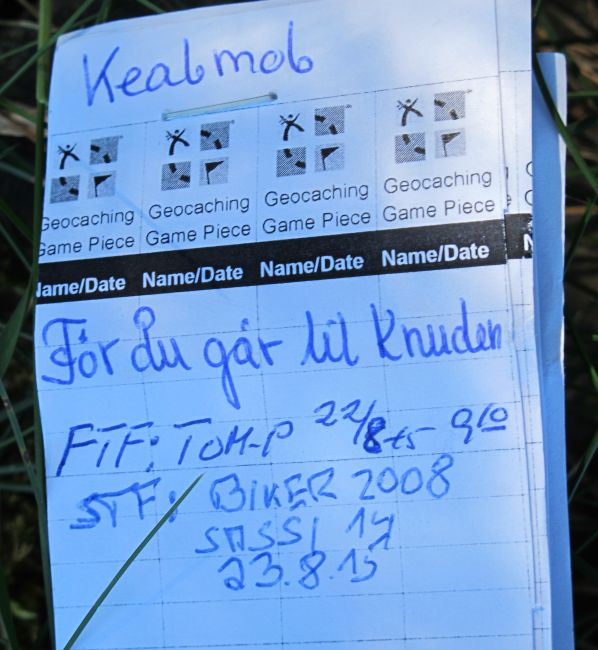 Kealmob
Geocaching Geocaching Geocaching Geocaching
Game Piece Game Piece Game Piece Game Piece
Name/Date Name/Date Name/Date Name/Date
Før du går til Knuden
FTF: TOM-P 22/8-15 9¹⁰
STF: BIKER 2008
SASSI 14
23.8.15